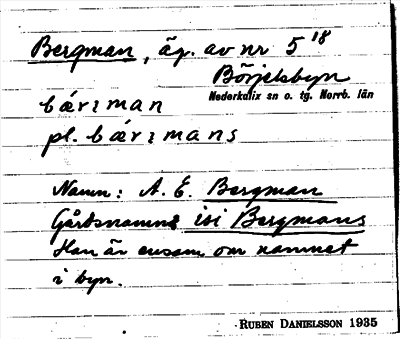 Bergman, äg. av nr 5¹⁸
Börjelsbyn
Nederkalix sn o. tg. Norrb. län
bǽrɪman
pl. bǽrɪmans
Namn: A. E. Bergman
Gårdsnamn: isi Bergmans
Han är ensam om namnet
i byn.
RUBEN DANIELSSON 1935